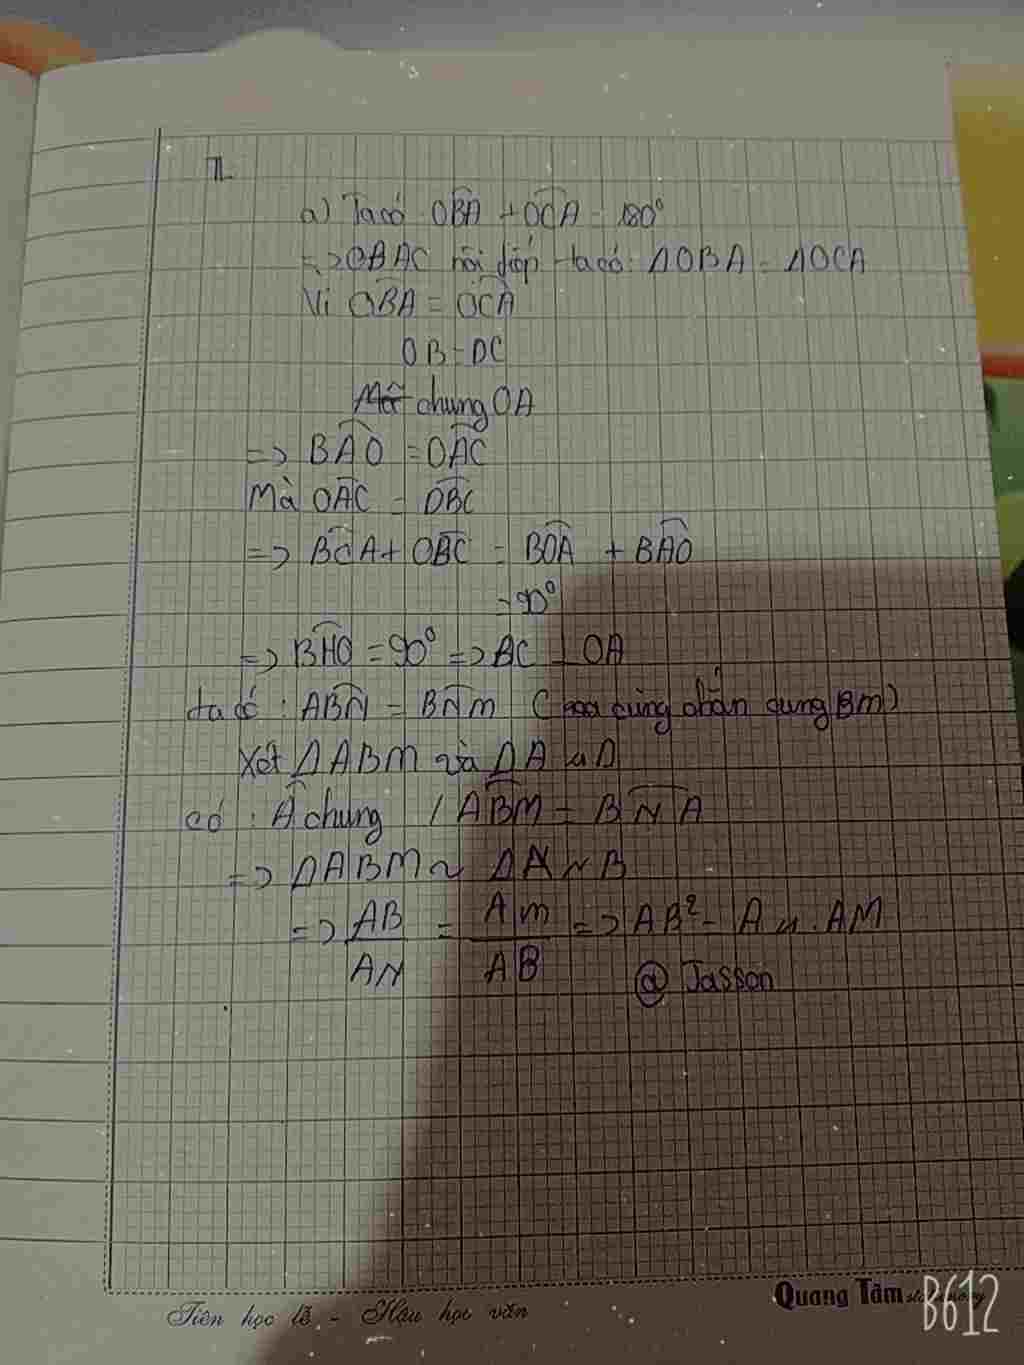 a) Ta có OBA + OCA = 180°
=> OBAC nội tiếp ta có: ΔOBA = ΔOCA
Vì OBA = OCA
OB = OC
chung OA
=> BAO = OAC
Mà OAC = OBC
=> BOA + OBC = BOA + BAO
= 90°
=> BHO = 90° => BC ⊥ OA
ta có: ABN = BNM ( cùng chắn cung BM)
Xét ΔABM và ΔA
có : A chung / ABM = BNA
=> ΔABM ~ ΔANB
=> AB/AN = Am/AB => AB² = AN.AM
@ Jasson
Tiên học lễ - Hậu học văn
Quang Tâm
B612